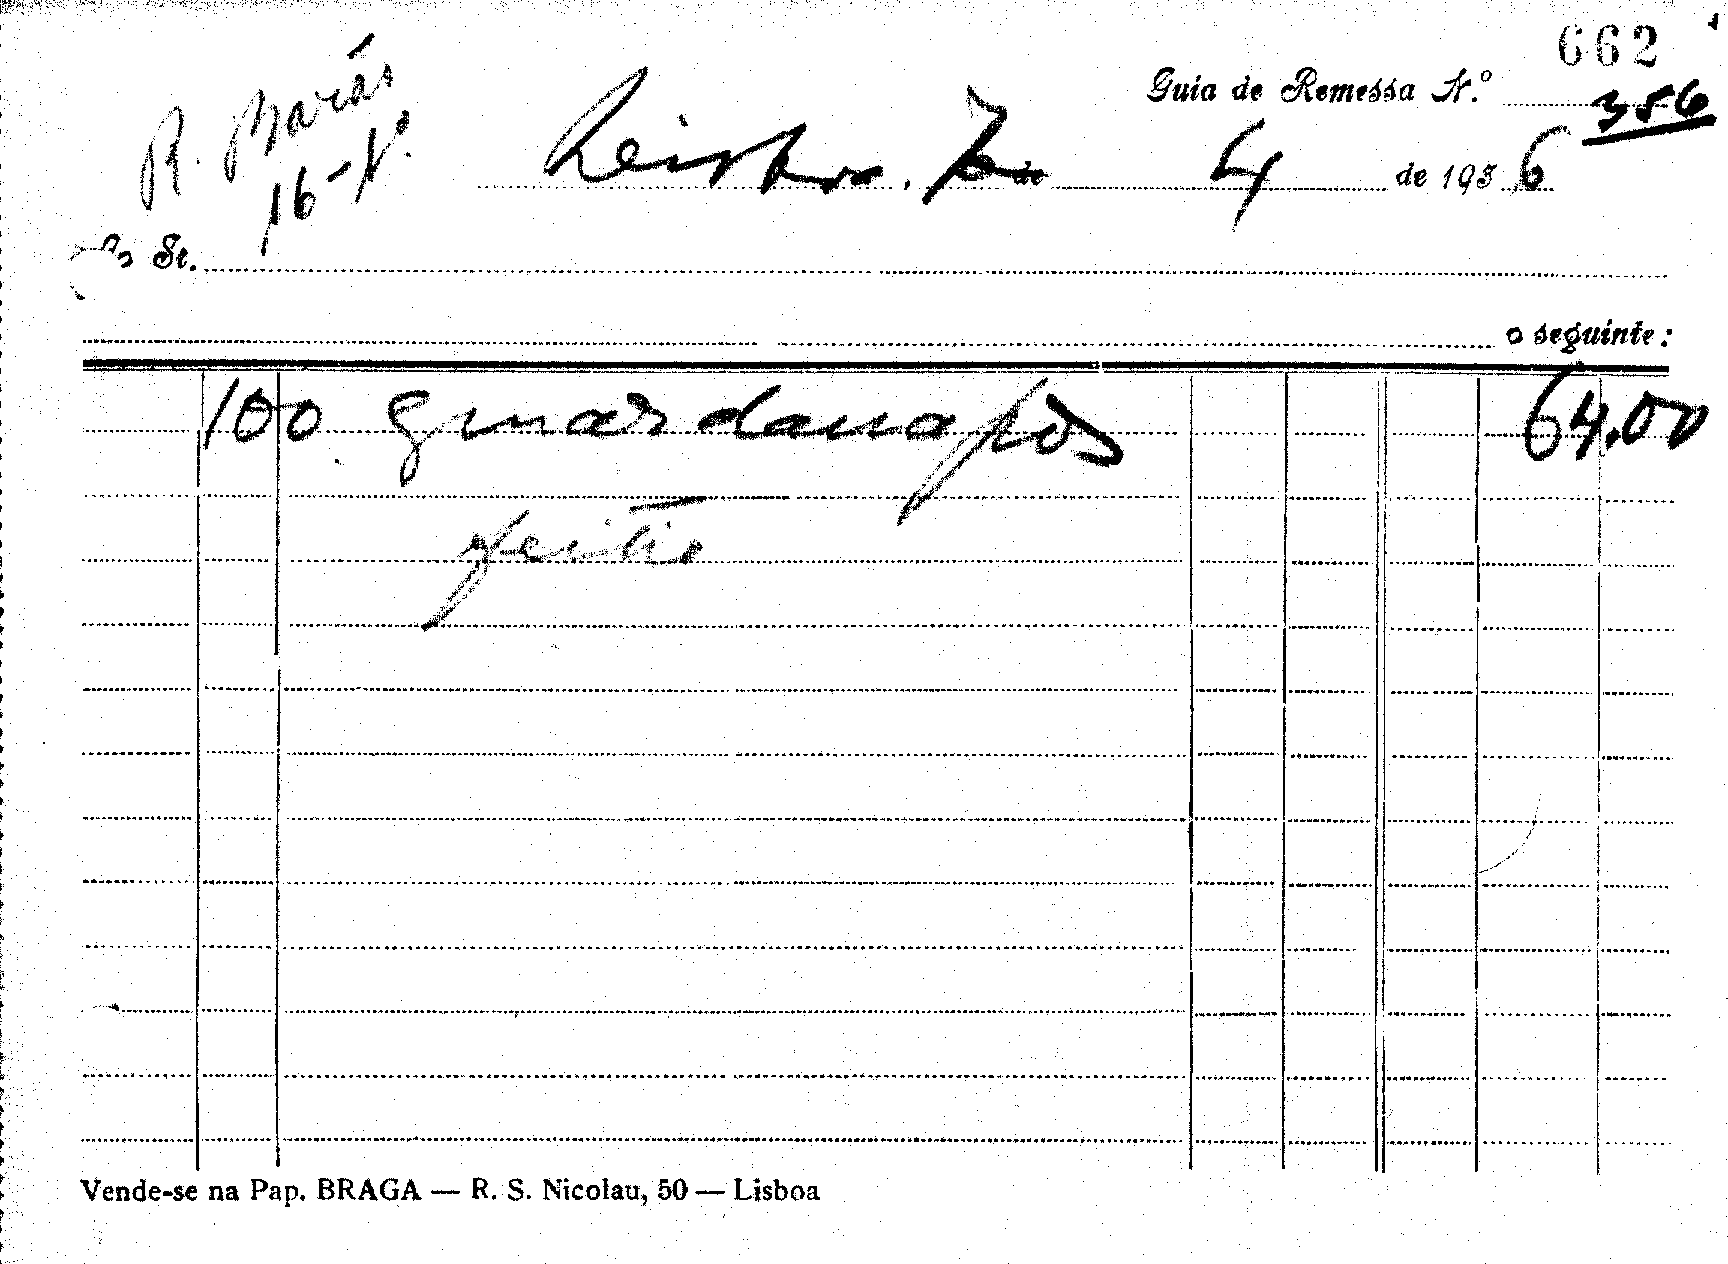 662
Guia de Remessa N.º 356
R. Marás
16-1º
Lisboa, 7 de 4 de 1956
Sr.
o seguinte:
100 guardanapos 64.00
feitio
Vende-se na Pap. BRAGA — R. S. Nicolau, 50 — Lisboa